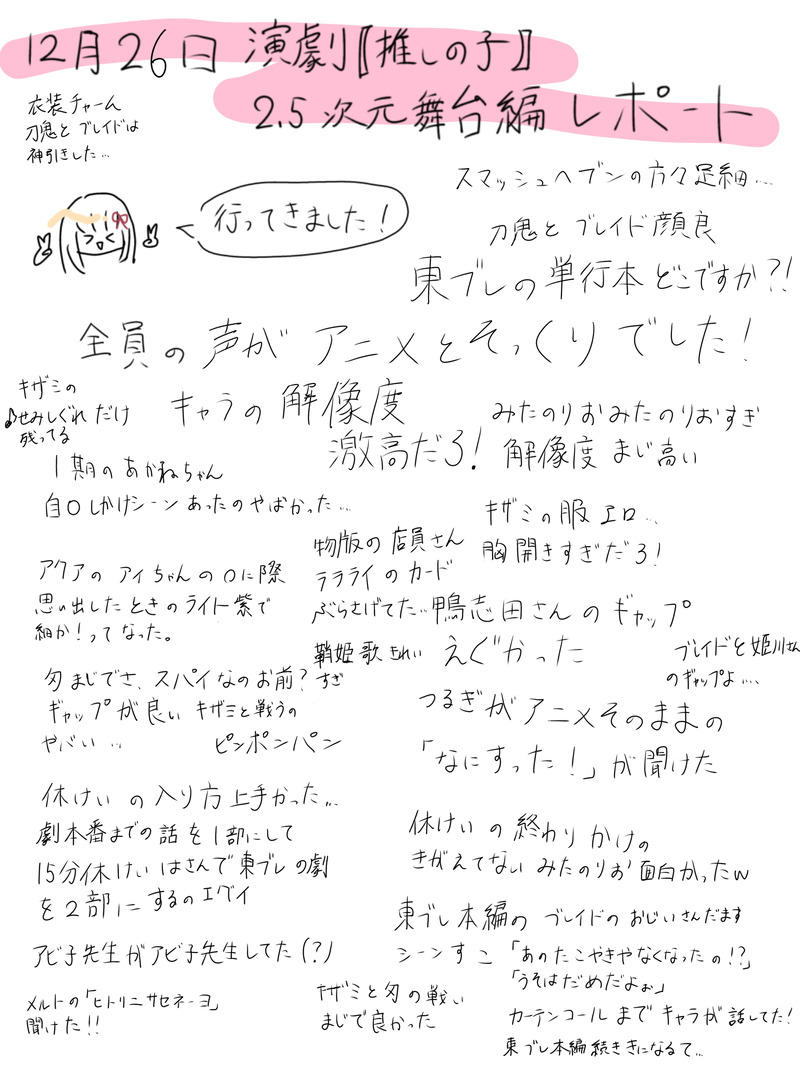 12月26日 演劇〚推しの子〛
2.5次元舞台編 レポート
衣装チャーム
刀鬼と ブレイドは
神引きした…
行ってきました！
スマッシュヘブンの方々足細…
刀鬼と ブレイド顔良
東ブレの単行本どこですか?!
全員の声がアニメとそっくりでした！
キザミの
♪せみしぐれだけ
残ってる
キャラの解像度
激高だろ！
みたのりおみたのりおすぎ
解像度まじ高い
1期のあかねちゃん
自〇しかけシーンあったのやばかった…
キザミの服エロ…
胸開きすぎだろ！
物販の店員さん
ララライのカード
ぶらさげてた…
アクアのアイちゃんの〇に際
思い出したときのライト紫で
細か！ってなった。
鴨志田さんのギャップ
えぐかった
鞘姫歌きれい
すぎ
ブレイドと姫川さん
のギャップよ…
匁まじでさ、スパイなのお前？
ギャップが良い キザミと戦うの
ヤバい…
ピンポンパン
つるぎがアニメそのままの
「なにすった！」が聞けた
休けいの入り方上手かった…
劇本番までの話を1部にして
15分休けいはさんで東ブレの劇
を2部にするのエグイ
休けいの終わりかけの
きがえてないみたのりお面白かったw
東ブレ本編のブレイドのおじいさんだます
シーンすこ「あのたこやきやなくなったの!?」
「うそはだめだよぉ」
アビ子先生がアビ子先生してた(?)
メルトの「ヒトリニサセネーヨ」
聞けた!!
キザミと匁の戦い
まじで良かった
カーテンコールまでキャラが話してた！
東ブレ本編続ききになるて…